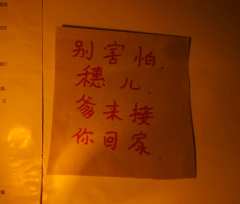 别害怕，
穗儿，
爹来接
你回家